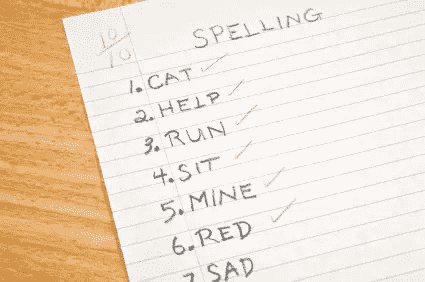 10/10
SPELLING
1. CAT ✓
2. HELP ✓
3. RUN ✓
4. SIT ✓
5. MINE ✓
6. RED ✓
7. SAD